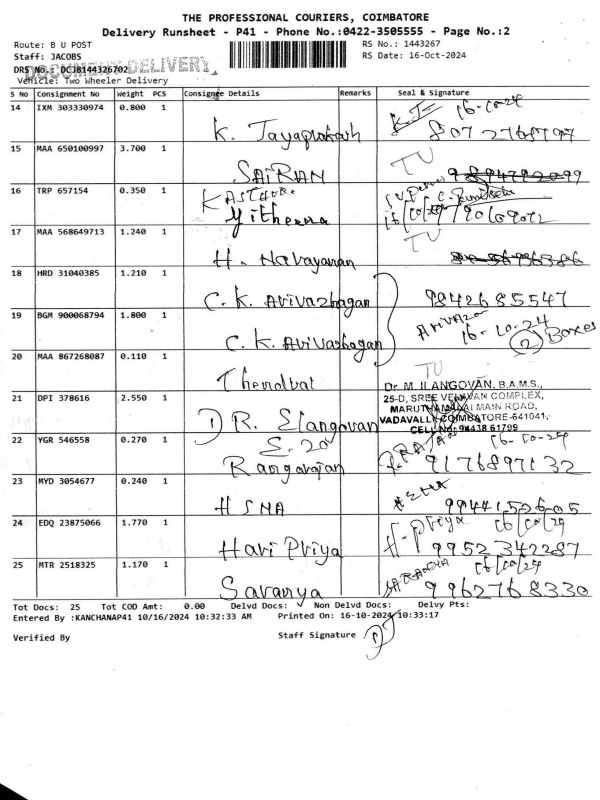 THE PROFESSIONAL COURIERS, COIMBATORE
Delivery Runsheet - P41 - Phone No.:0422-3505555 - Page No.:2
Route: B U POST RS No.: 1443267
Staff: JACOBS RS Date: 16-Oct-2024
DOCUMENT DELIVERY
DRS No.: DCJB144326702
Vehicle: Two Wheeler Delivery
S No Consignment No Weight PCS Consignee Details Remarks Seal & Signature
14 IXM 303330974 0.800 1 K. Jayaprakash K.J- 16-10-24
8072768797
15 MAA 650100997 3.700 1 SAIRAN TU
16 TRP 657154 0.350 1 KASTHURI
Yitheena 16/10/24 7790609012
17 MAA 568649713 1.240 1 H. Narayanan TU
18 HRD 31040385 1.210 1 C. K. Arivazhagan 9842685547
19 BGM 900068794 1.800 1 C. K. Arivazhagan 16-10-24
2 Boxes
20 MAA 867268087 0.110 1 Thendral TU
21 DPI 378616 2.550 1 D R. Elangovan
Dr. M. ILANGOVAN, B.A.M.S.,
25-D, SREE VELAVAN COMPLEX,
MARUTHAMALAI MAIN ROAD,
VADAVALLI, COIMBATORE-641041,
CELL No: 94438 61799
22 YGR 546558 0.270 1 Rangarajan 16-10-24
9176897132
23 MYD 3054677 0.240 1 HSNA
9944152605
24 EDQ 23875066 1.770 1 Hari Priya H-Priya 16/10/24
9952342287
25 MTR 2518325 1.170 1 Saranya SARANYA 16/10/24
9962768330
Tot Docs: 25 Tot COD Amt: 0.00 Delvd Docs: Non Delvd Docs: Delvy Pts:
Entered By :KANCHANAP41 10/16/2024 10:32:33 AM Printed On: 16-10-2024 10:33:17
Verified By Staff Signature